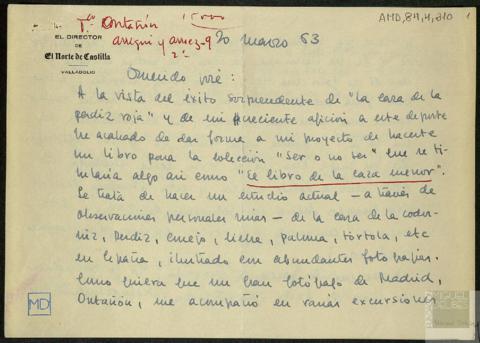 AMD,84,4,210 1
Tº Ontañón
EL DIRECTOR
DE
El Norte de Castilla
VALLADOLID
2º
20 marzo 63
Querido José:
A la vista del éxito sorprendente de "La caza de la
perdiz roja" y de mi creciente afición a este deporte
he acabado de dar forma a mi proyecto de hacerte
un libro para la colección "Ser o no ser" que se ti-
tularía algo así como "El libro de la caza menor".
Se trata de hacer un estudio actual – a través de
observaciones personales mías – de la caza de la codor-
niz, perdiz, conejo, liebre, paloma, tórtola, etc
en España, ilustrado con abundantes fotografías.
Como quiera que un gran fotógrafo de Madrid,
Ontañón, me acompañó en varias excursiones
MD
MIGUEL